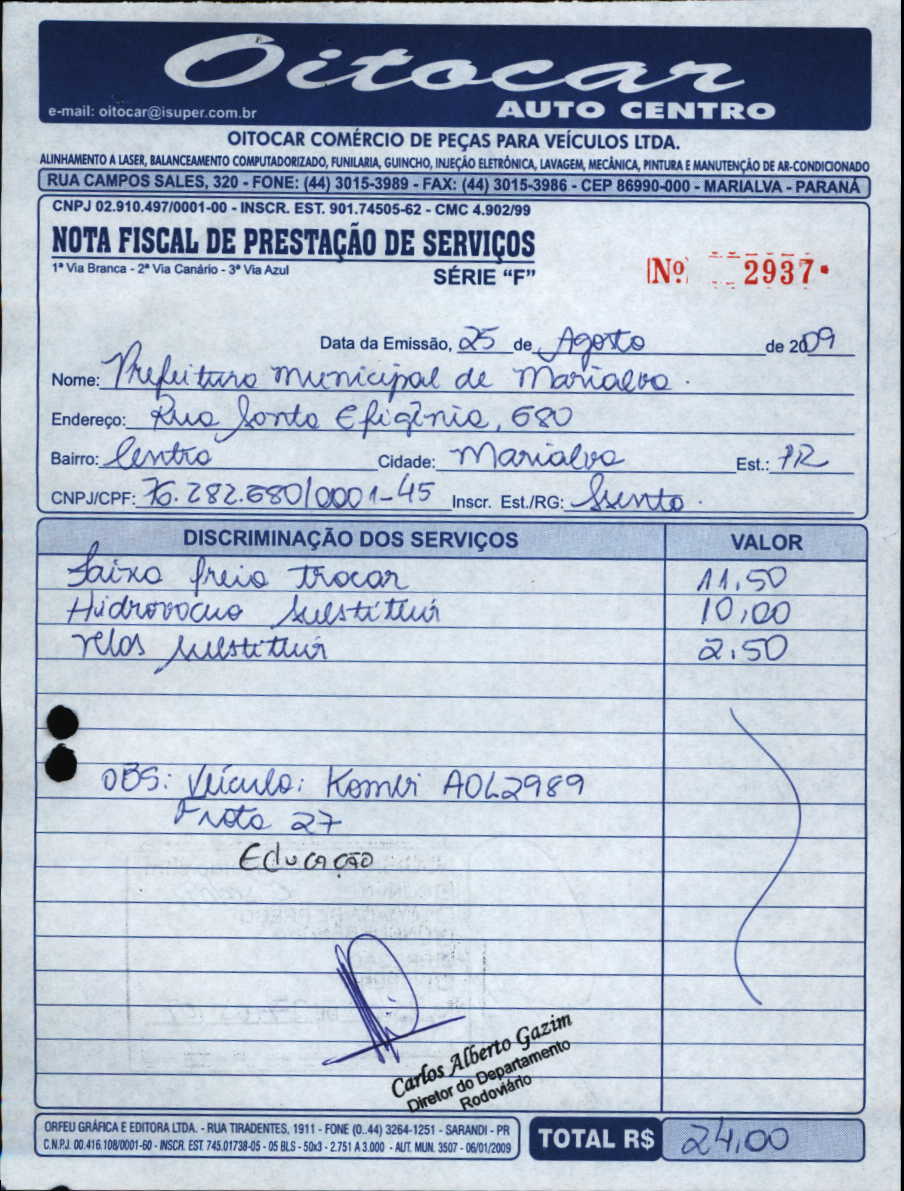 Oitocar
AUTO CENTRO
e-mail: oitocar@isuper.com.br
OITOCAR COMÉRCIO DE PEÇAS PARA VEÍCULOS LTDA.
ALINHAMENTO A LASER, BALANCEAMENTO COMPUTADORIZADO, FUNILARIA, GUINCHO, INJEÇÃO ELETRÔNICA, LAVAGEM, MECÂNICA, PINTURA E MANUTENÇÃO DE AR-CONDICIONADO
RUA CAMPOS SALES, 320 - FONE: (44) 3015-3989 - FAX: (44) 3015-3986 - CEP 86990-000 - MARIALVA - PARANÁ
CNPJ 02.910.497/0001-00 - INSCR. EST. 901.74505-62 - CMC 4.902/99
NOTA FISCAL DE PRESTAÇÃO DE SERVIÇOS
1ª Via Branca - 2ª Via Canário - 3ª Via Azul
SÉRIE "F"
Nº 2937
Data da Emissão, 25 de Agosto de 2009
Nome: Prefeitura municipal de Marialva.
Endereço: Rua Santa Efigênia, 680
Bairro: Centro Cidade: Marialva Est.: PR
CNPJ/CPF: 76.282.680/0001-45 Inscr. Est./RG: Isento.
DISCRIMINAÇÃO DOS SERVIÇOS VALOR
Faixa freio trocar 11,50
Hidrovacuo substituir 10,00
velas substituir 2,50
OBS: Veículo: Kombi AOL2989
Frota 27
Educação
Carlos Alberto Gazim
Diretor do Departamento
Rodoviário
ORFEU GRÁFICA E EDITORA LTDA. - RUA TIRADENTES, 1911 - FONE (0..44) 3264-1251 - SARANDI - PR
C.N.P.J. 00.416.108/0001-60 - INSCR. EST. 745.01738-05 - 05 BLS - 50x3 - 2.751 A 3.000 - AUT. MUN. 3507 - 06/01/2009
TOTAL R$ 24,00